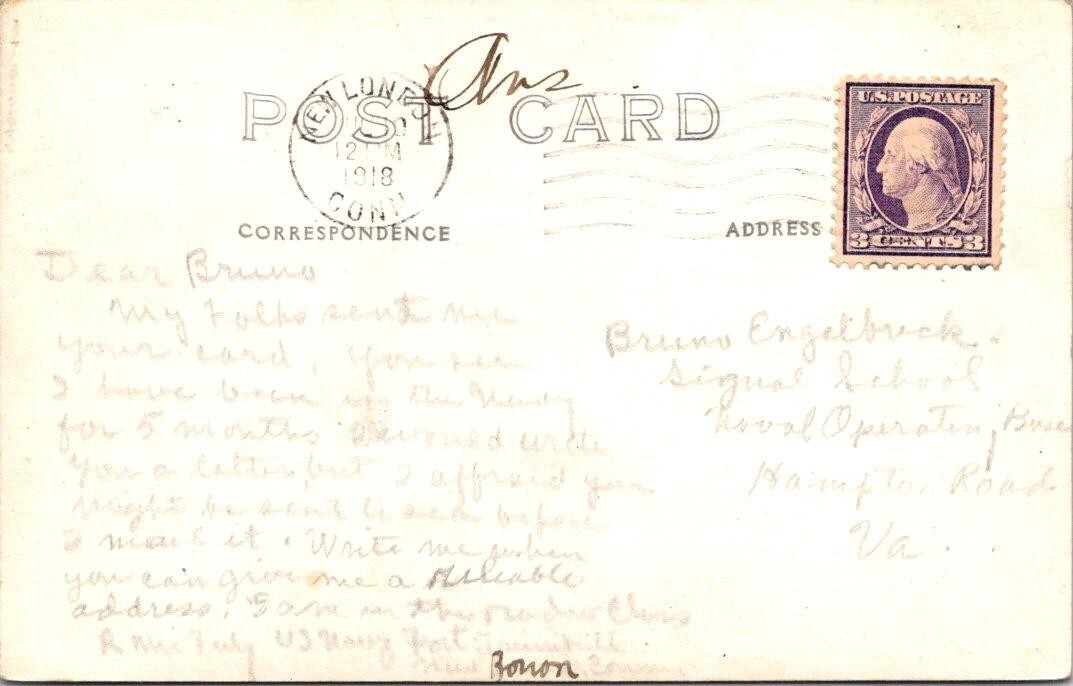 Ans
POST CARD
NEW LONDON
12 PM
1918
CONN
U.S. POSTAGE
3 CENTS 3
CORRESPONDENCE
ADDRESS
Dear Bruno
My Folks sent me
your card, you see
I have been in the Navy
for 5 months I would write
you a letter, but I affraid you
might be sent to sea before
I mail it. Write me when
you can give me a reliable
address. I am in the Class
R US Navy Fort
New Conn.
Bruno Engelbreck.
Signal School
Naval Operating Base
Hampton Road
Va.